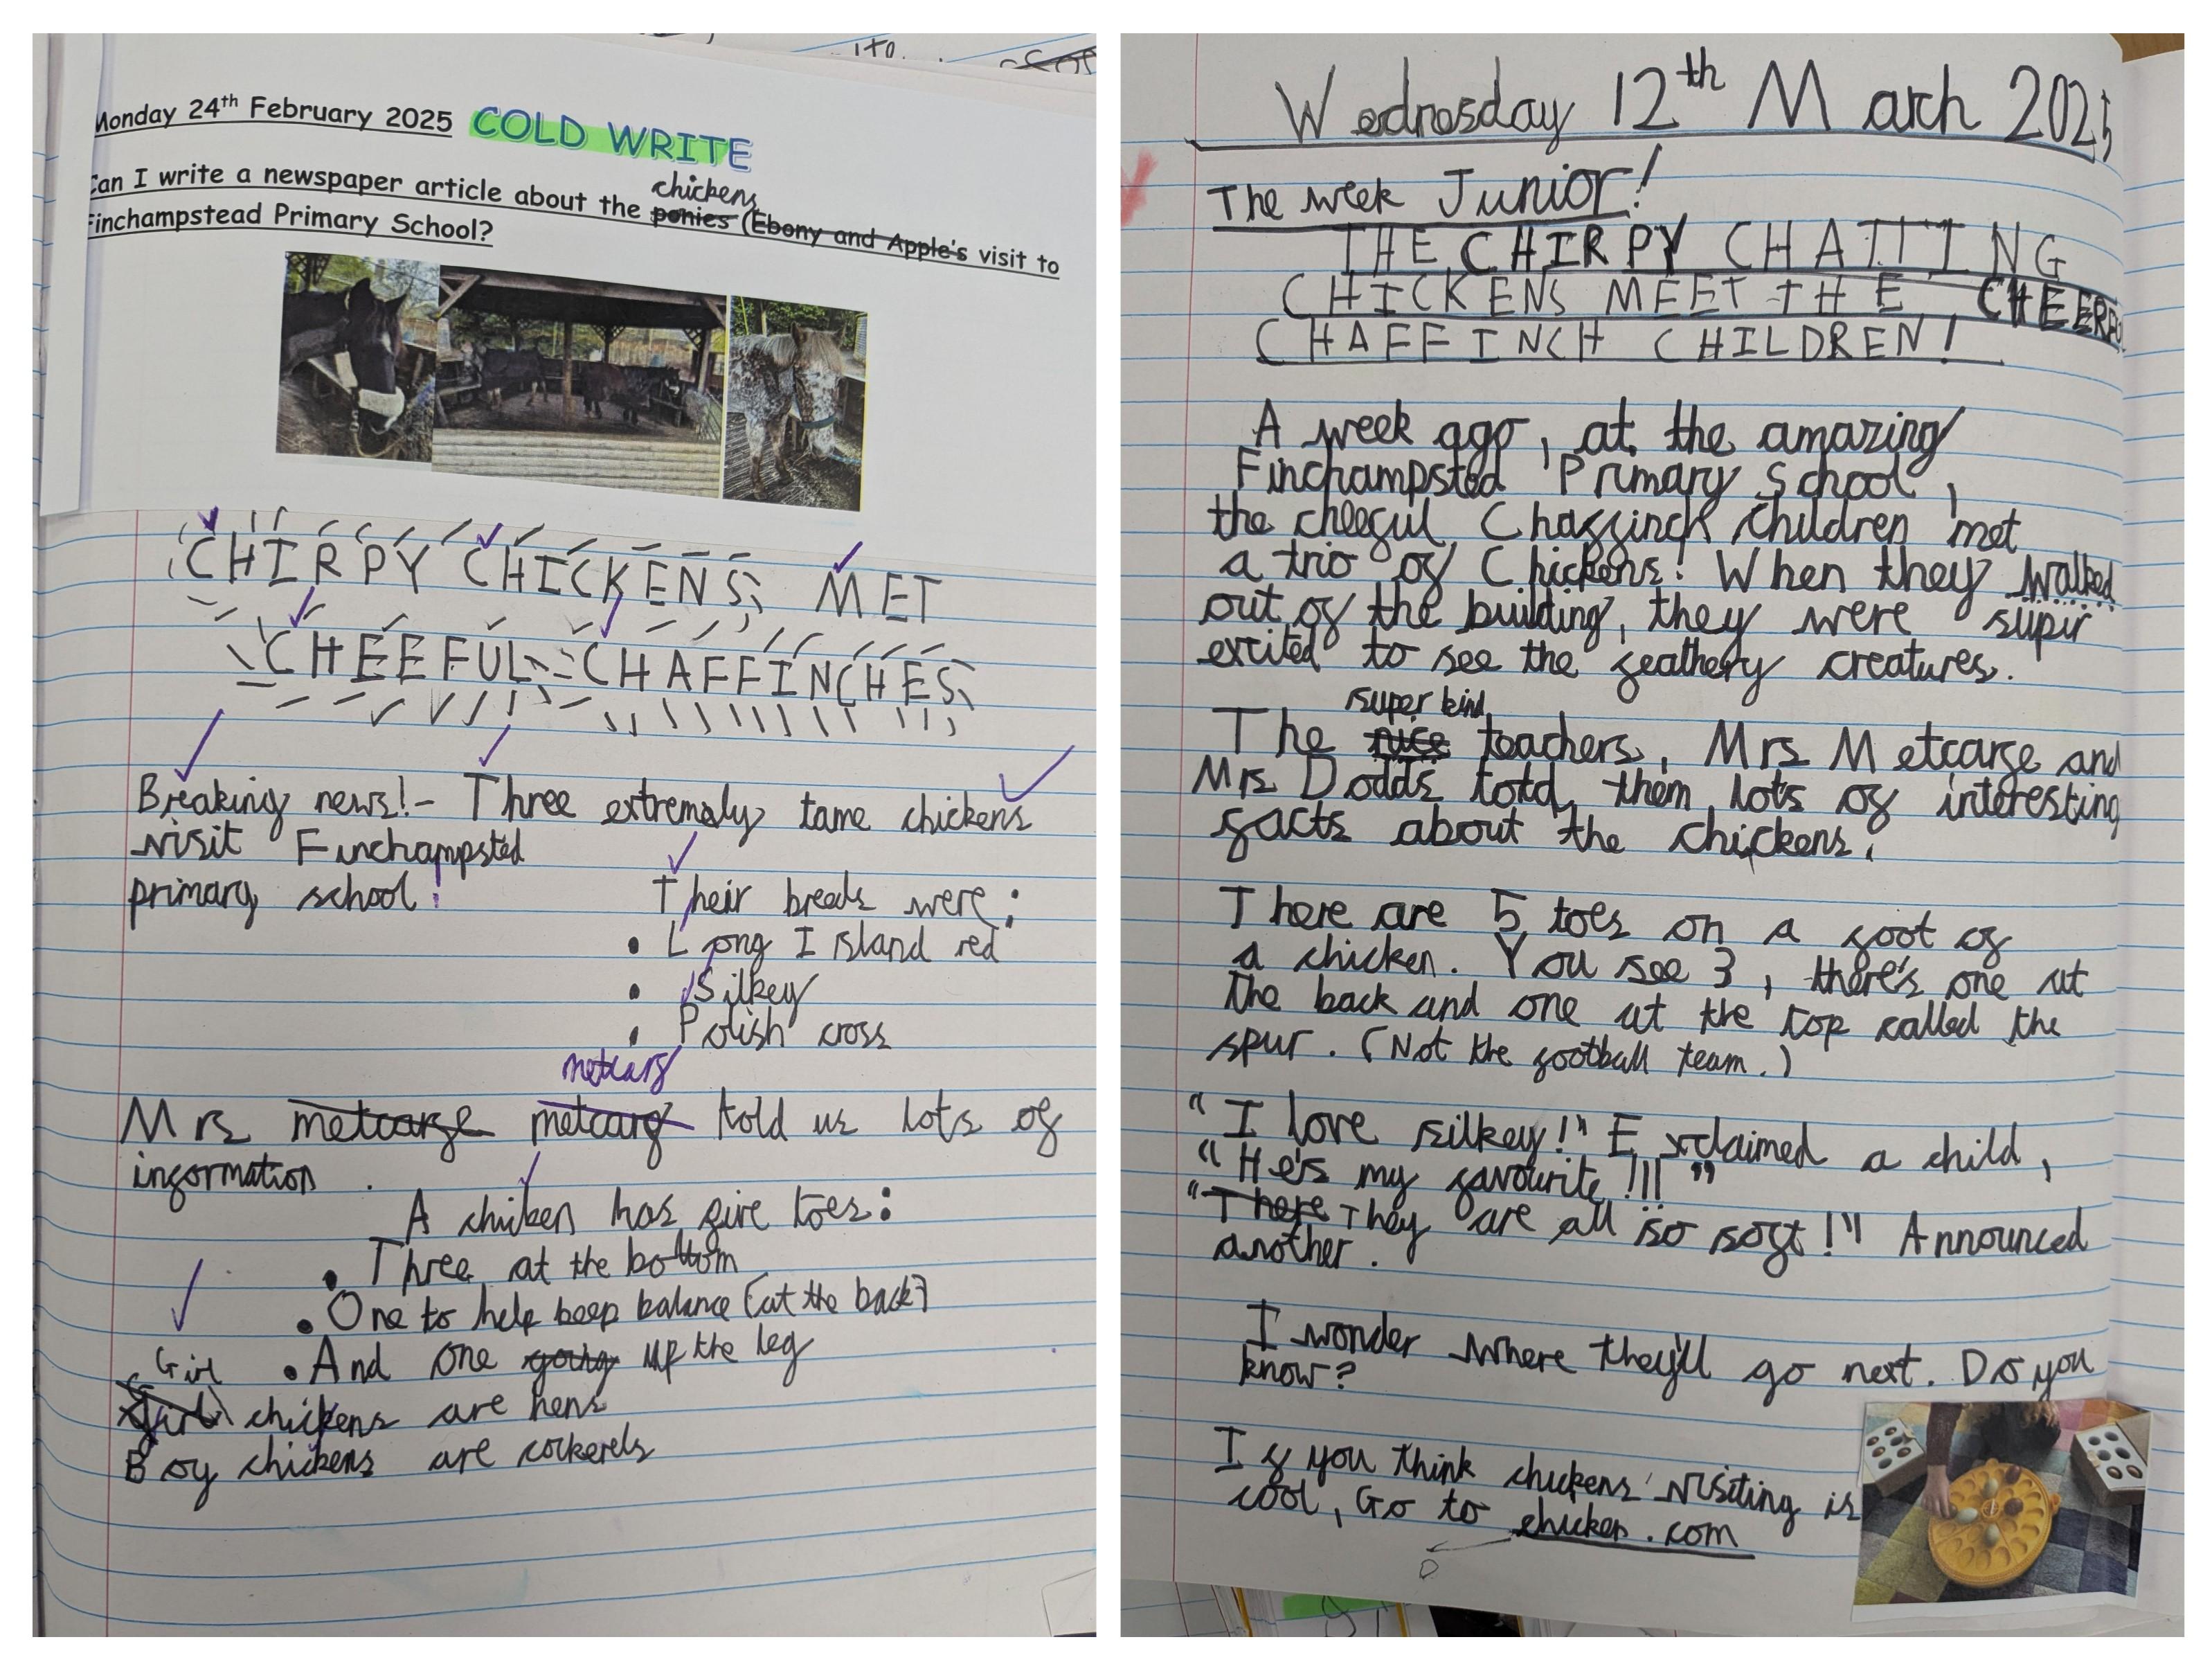 Monday 24th February 2025 COLD WRITE
chickens
Can I write a newspaper article about the ponies (Ebony and Apple's visit to
Finchampstead Primary School?
CHIRPY CHICKENS MET
CHEEFUL CHAFFINCHES
Breaking news!- Three extremely tame chickens
visit Finchampsted
primary school!
Their breeds were:
• Long Island red
• Silkey
• Polish cross
metcarf
Mrs metcarfe metcarf told us lots of
information.
A chiken has five toes:
• Three at the bottom
• One to help beep balance (at the back)
• And one going up the leg
Girl
girl chickens are hens
Boy chickens are cockerels
Wednesday 12th March 2025
The week Junior!
THE CHIRPY CHATTING
CHICKENS MEET THE CHEERFU
CHAFFINCH CHILDREN!
A week ago, at the amazing
Finchampsted Primary School,
the cheeful Chaffinch children met
a trio of Chickens! When they walked
out of the building, they were supir
excited to see the feathery creatures.
super kind
The nice teachers, Mrs Metcarfe and
Mrs Dodds told them lots of interesting
facts about the chickens.
There are 5 toes on a foot of
a chicken. You see 3, there's one at
the back and one at the top called the
spur. (Not the football team.)
"I love silkey!" Exclaimed a child,
"He's my favourite!!!"
"There They are all so soft!" Announced
another.
I wonder where they'll go next. Do you
know?
If you think chickens visiting is
cool, Go to chicken.com